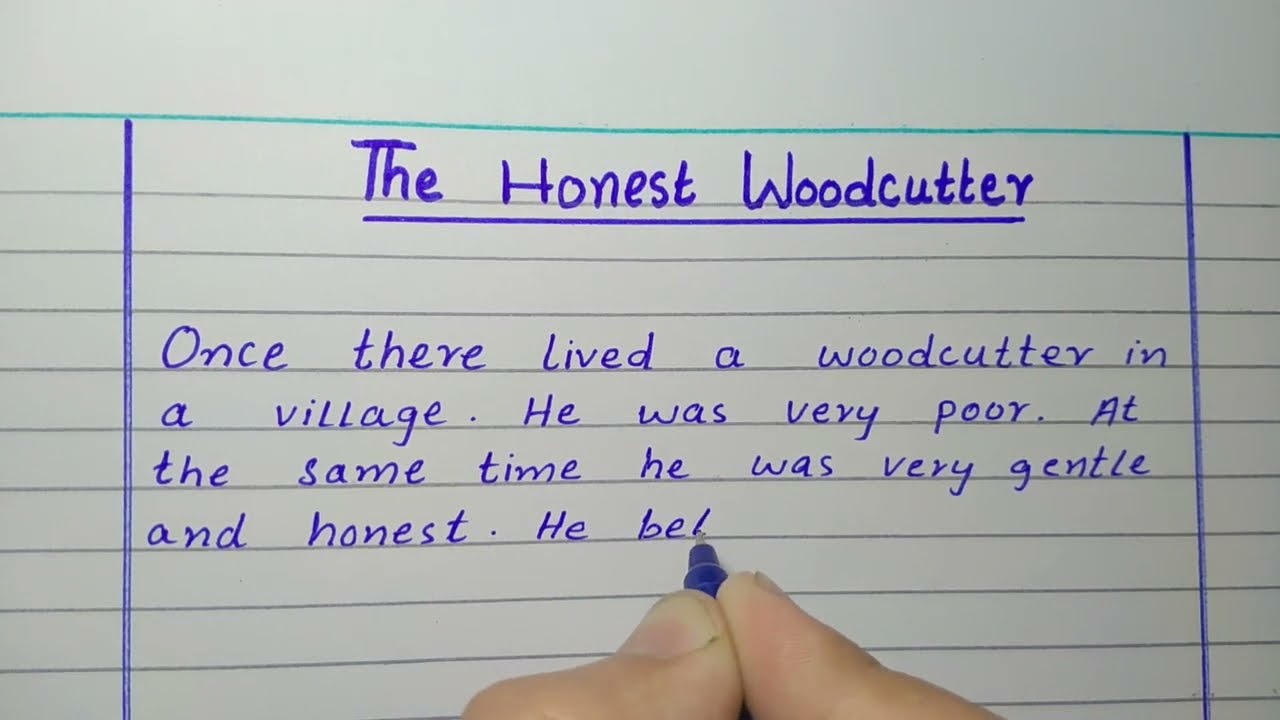 The Honest Woodcutter
Once there lived a woodcutter in
a village. He was very poor. At
the same time he was very gentle
and honest. He bel